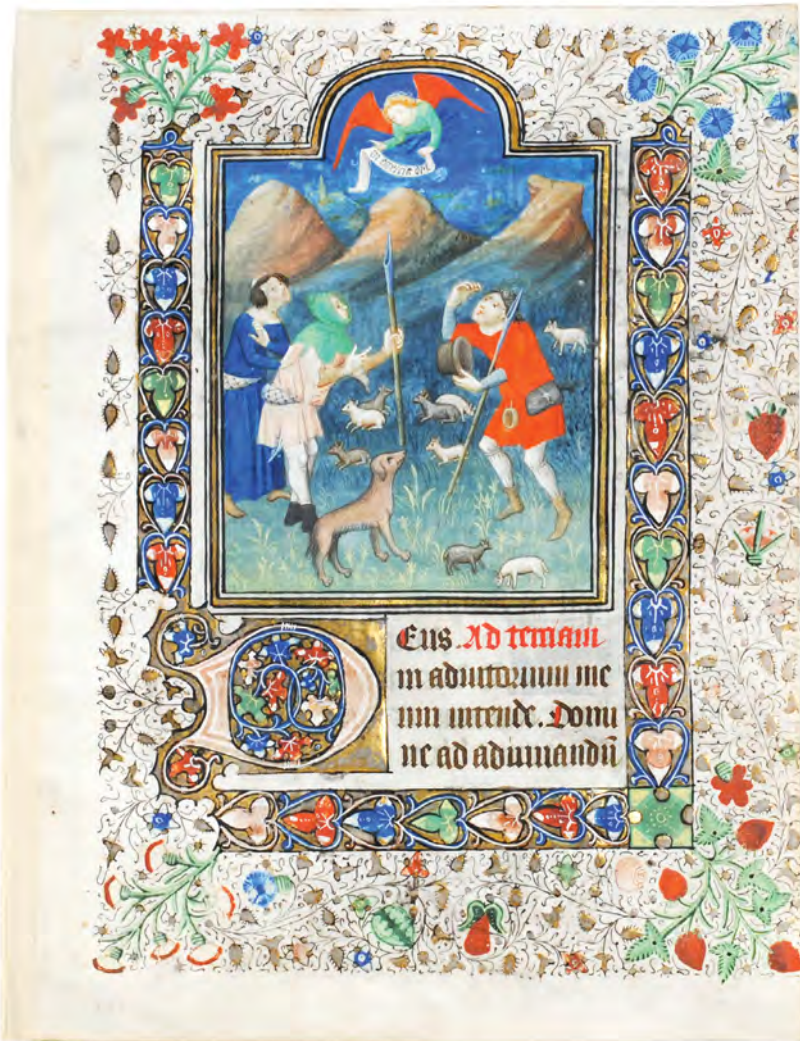 DEus. Ad terciam
in adiutorium me
um intende. Domi
ne ad adiuuandū